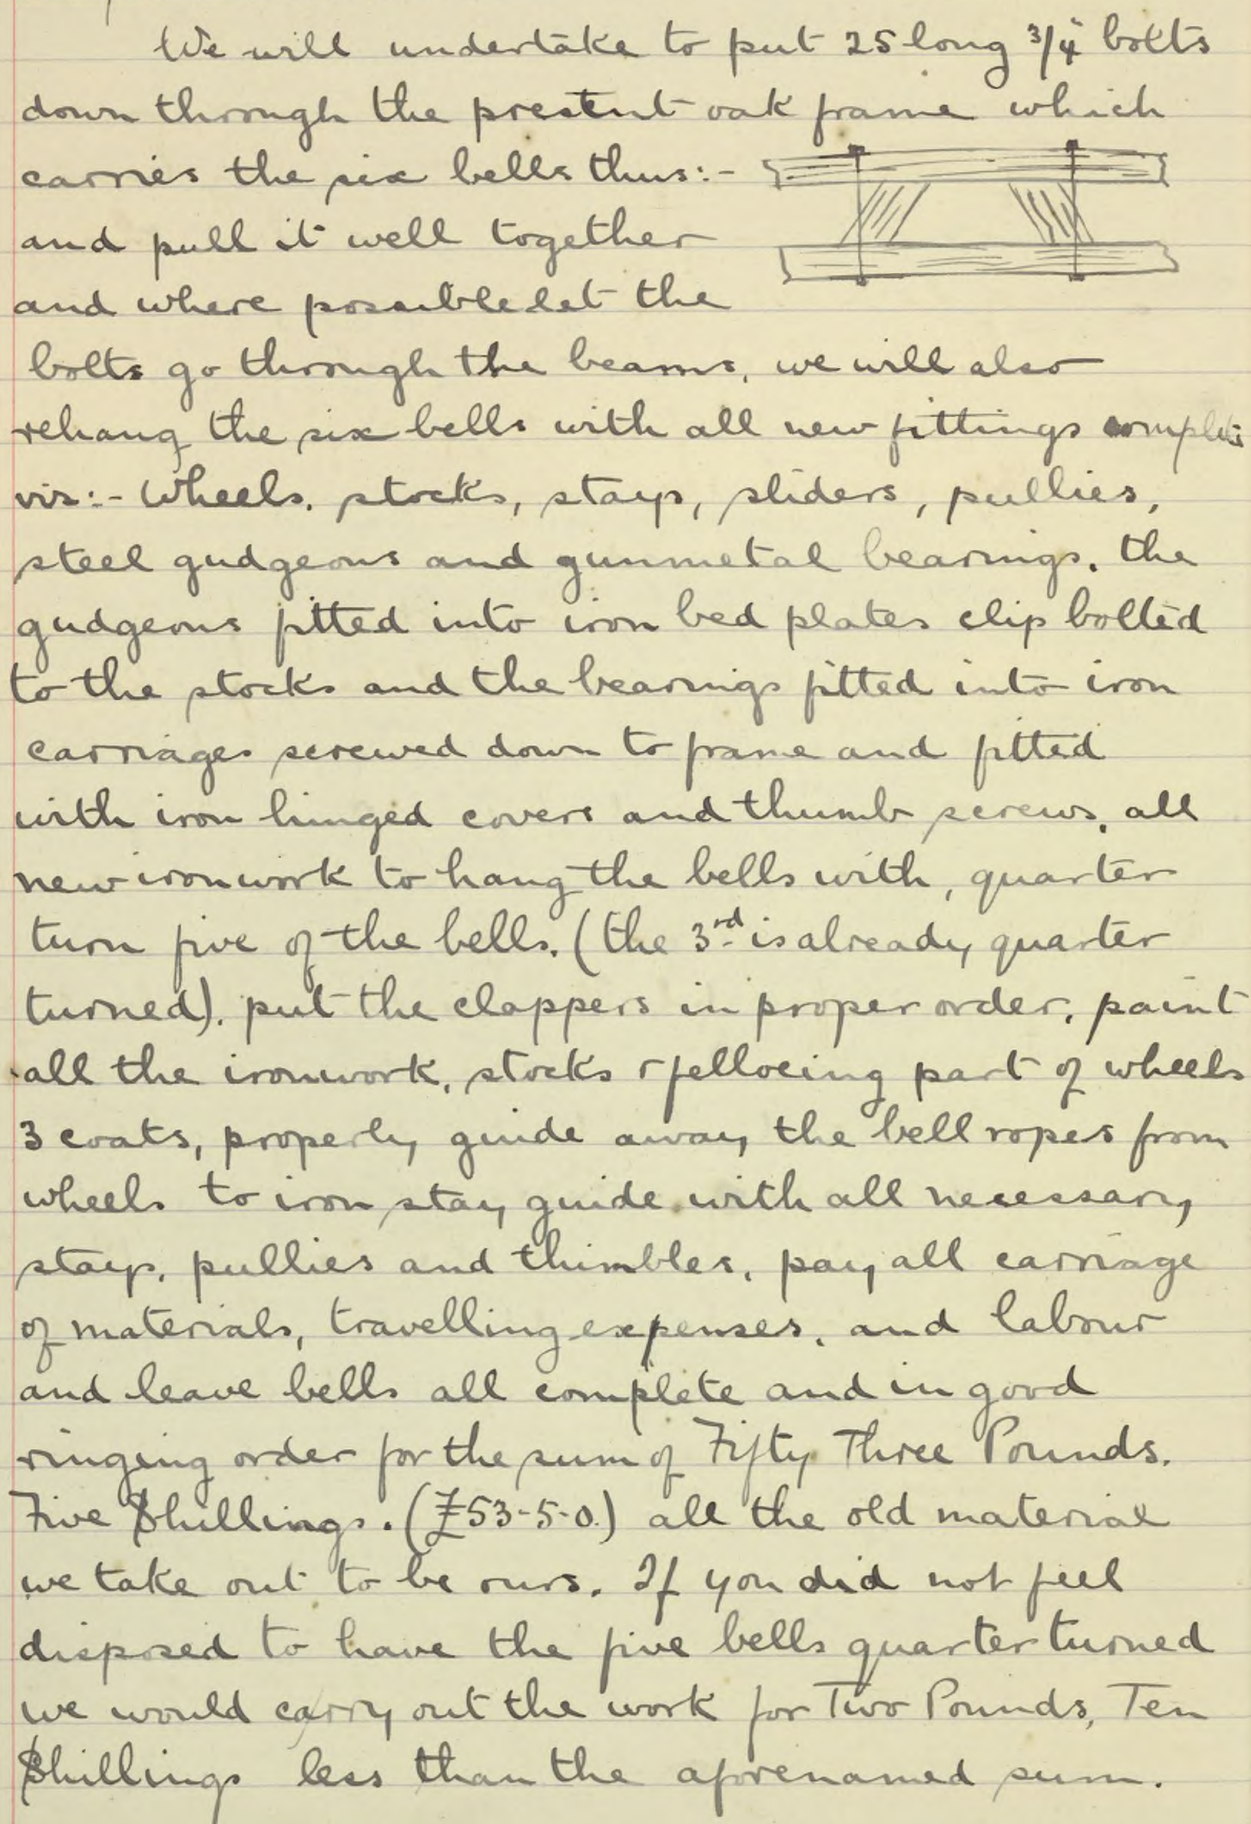 We will undertake to put 25 long 3/4" bolts
down through the present oak frame which
carries the six bells thus:-
and pull it well together
and where possible let the
bolts go through the beams, we will also
rehang the six bells with all new fittings complete
viz:- Wheels, stocks, stays, sliders, pullies,
steel gudgeons and gunmetal bearings, the
gudgeons fitted into iron bed plates clip bolted
to the stocks and the bearings fitted into iron
carriages screwed down to frame and fitted
with iron hinged covers and thumb screws, all
new ironwork to hang the bells with, quarter
turn five of the bells, (the 3rd is already quarter
turned), put the clappers in proper order, paint
all the ironwork, stocks & felloeing part of wheels
3 coats, properly guide away the bell ropes from
wheels to iron stay guide with all necessary
stays, pullies and thimbles, pay all carriage
of materials, travelling expenses, and labour
and leave bells all complete and in good
ringing order for the sum of Fifty Three Pounds,
Five Shillings. (£53-5-0.) all the old material
we take out to be ours. If you did not feel
disposed to have the five bells quarter turned
we would carry out the work for Two Pounds, Ten
Shillings less than the aforenamed sum.